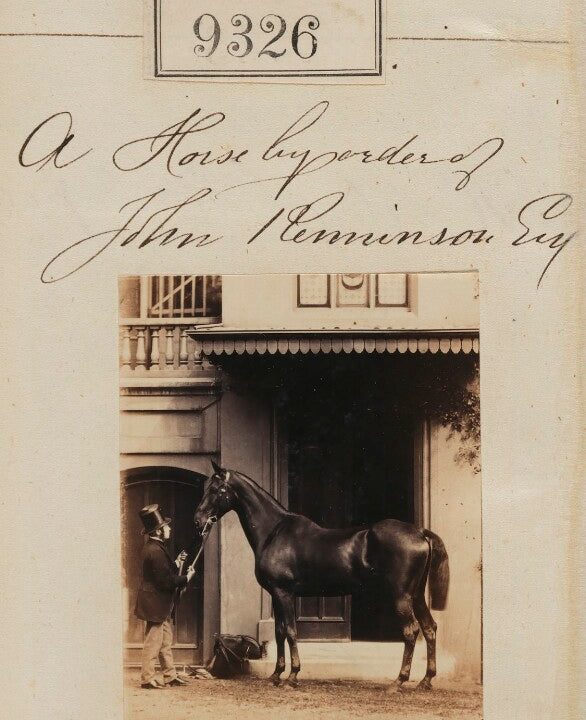 9326
A Horse by order of
John Kenninson Esq